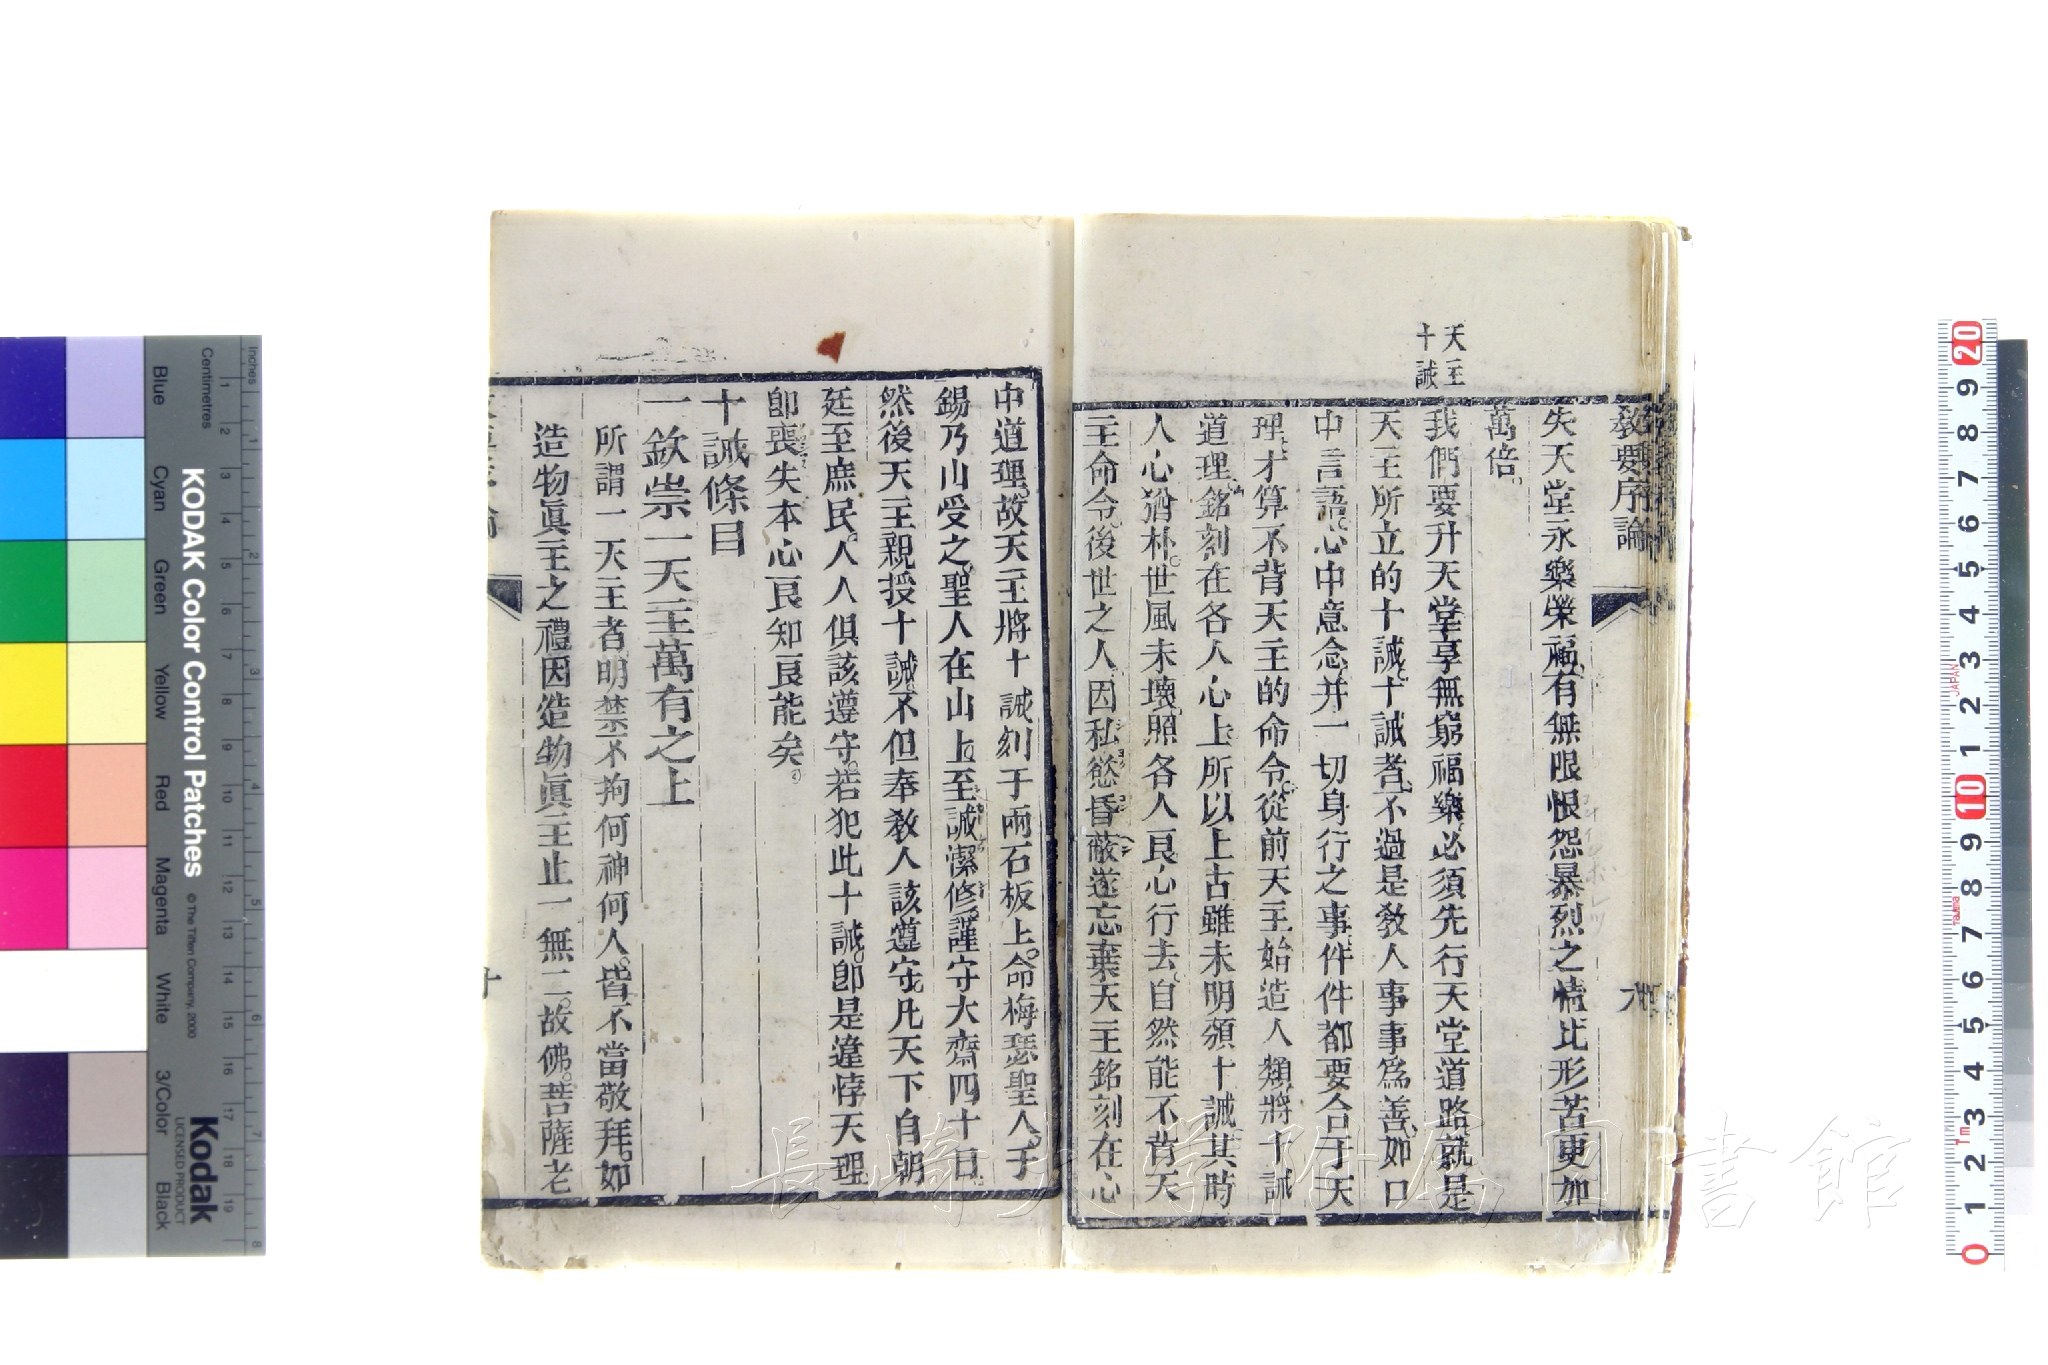 教要序論
失天堂永樂榮福、有無限恨怨暴烈之情比形苦更加
萬倍。
天主
十誡
我們要升天堂享無窮福樂、必須先行天堂道路就是
天主所立的十誡、十誡者、不過是教人事事為善、如口
中言語、心中意念、并一切身行之事、件件都要合于天
理、才算不背天主的命令。從前天主始造人類、將十誡
道理、銘刻在各人心上、所以上古雖未明頒十誡、其時
人心猶朴。世風未壞、照各人良心行去、自然能不背天
主命令、後世之人、因私慾昏蔽、遂忘棄天主銘刻在心
中道理、故天主將十誡刻于兩石板上。命梅瑟聖人、于
錫乃山受之、聖人在山上、至誠潔修、謹守大齋四十日、
然後天主親授十誡、不但奉教人該遵守、凡天下自朝
廷至庶民、人人俱該遵守。若犯此十誡。卽是違悖天理
卽喪失本心良知良能矣。
十誡條目
一欽崇一天主萬有之上
所謂一天主者、明禁不拘何神何人、皆不當敬拜。如
造物眞主之禮因造物眞主止一無二。故佛。菩薩老
長崎大学附属図書館
KODAK Color Control Patches
© The Tiffen Company, 2000
Kodak
LICENSED PRODUCT
Inches
Centimetres
Blue
Cyan
Green
Yellow
Red
Magenta
White
3/Color
Black
JAPAN